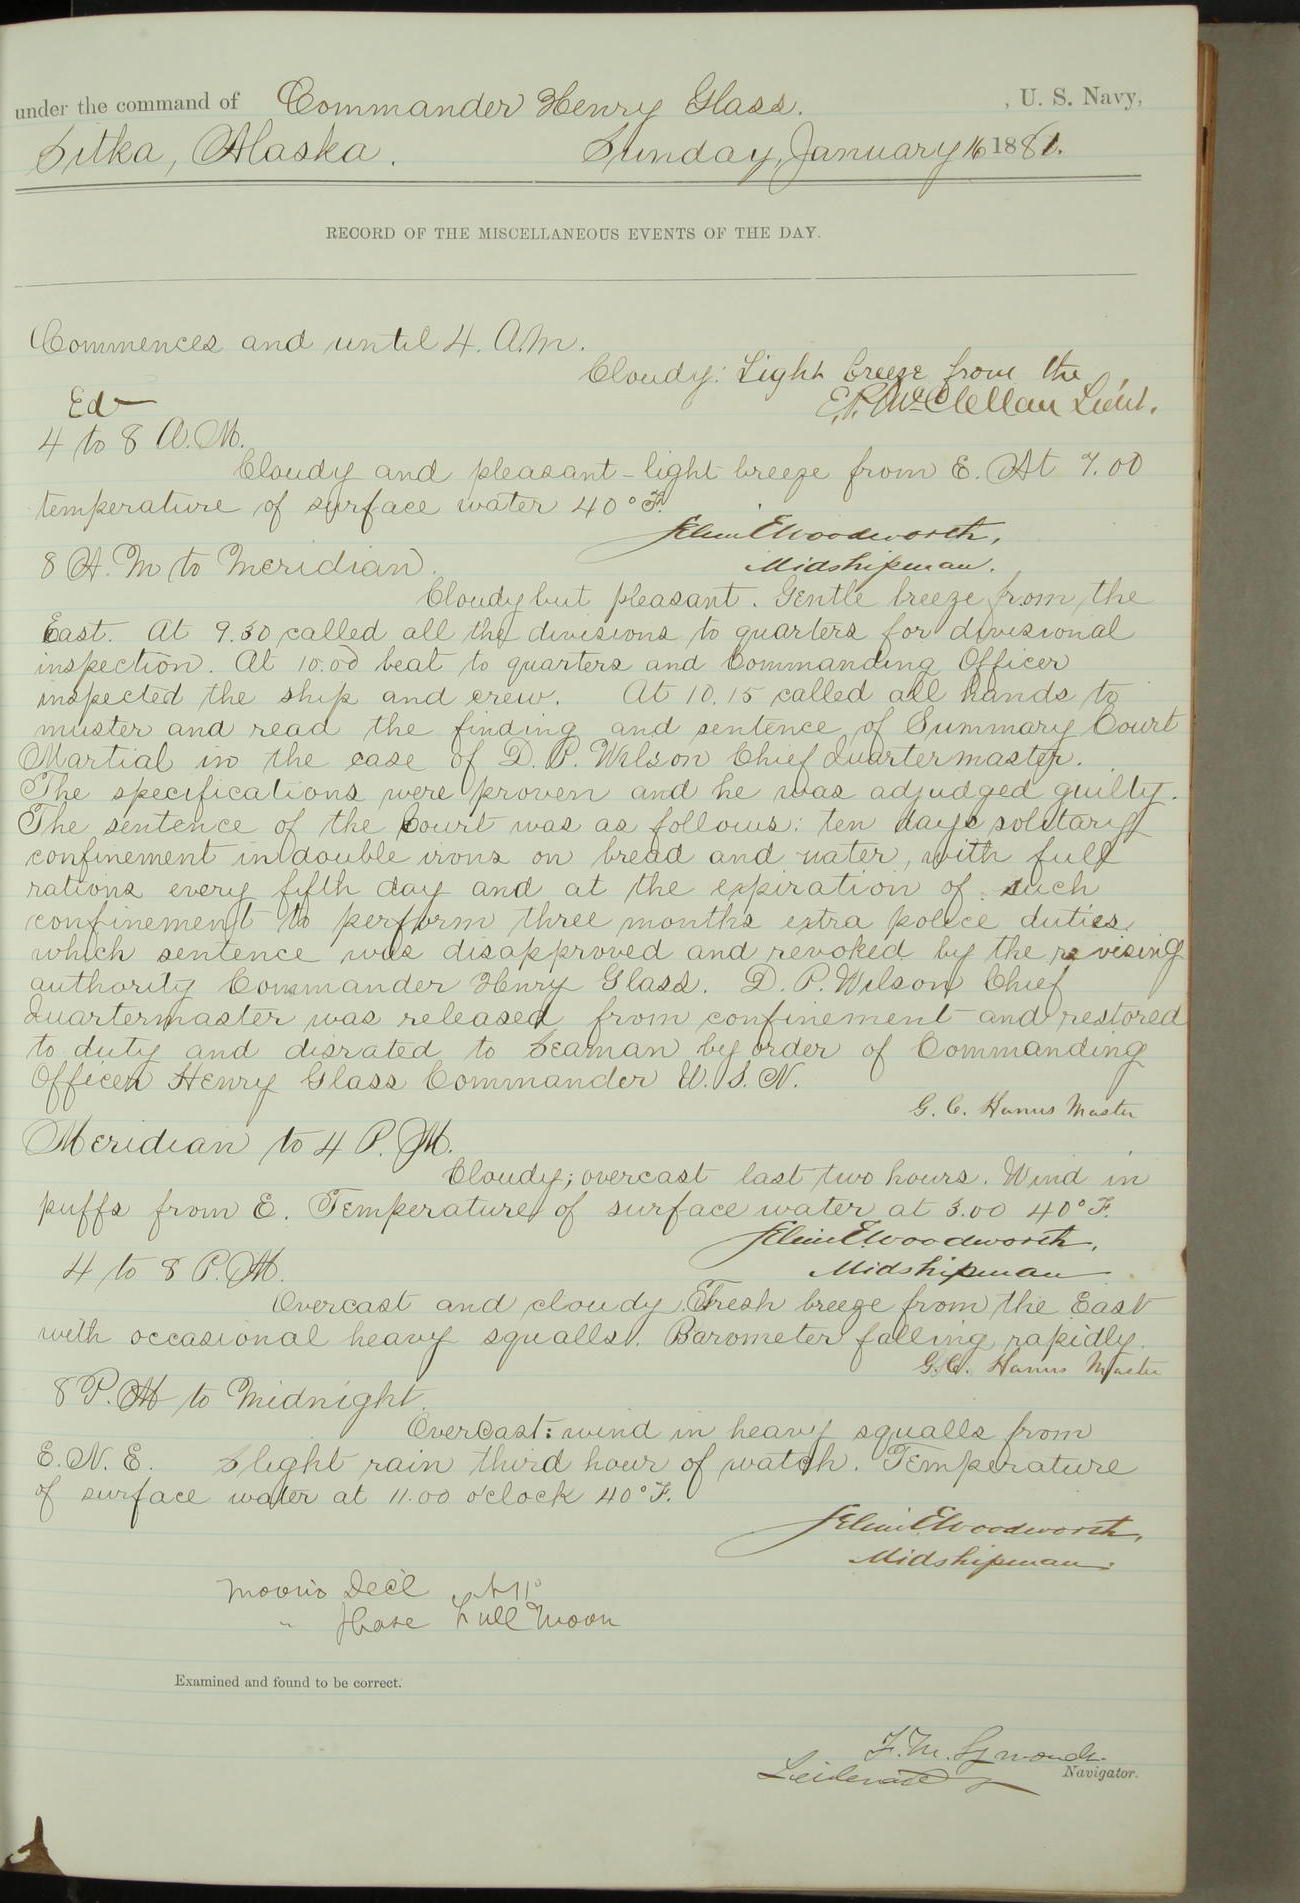 under the command of Commander Henry Glass. , U. S. Navy,
Sitka, Alaska. Sunday, January 16 1881.
RECORD OF THE MISCELLANEOUS EVENTS OF THE DAY.
Commences and until 4. A.M.
Cloudy: Light breeze from the
Ed E.P. McClellan Lieut.
4 to 8 A.M.
Cloudy and pleasant - light breeze from E. At 7.00
temperature of surface water 40° F.
Selim E Woodworth,
8 A.M to Meridian. Midshipman.
Cloudy but pleasant. Gentle breeze from the
East. At 9.30 called all the divisions to quarters for divisional
inspection. At 10.00 beat to quarters and Commanding Officer
inspected the ship and crew. At 10.15 called all hands to
muster and read the finding and sentence of Summary Court
Martial in the case of D. P. Wilson Chief Quartermaster.
The specifications were proven and he was adjudged guilty.
The sentence of the Court was as follows: ten days solitary
confinement in double irons on bread and water, with full
rations every fifth day and at the expiration of such
confinement to perform three months extra police duties,
which sentence was disapproved and revoked by the revising
authority Commander Henry Glass. D. P. Wilson Chief
Quartermaster was released from confinement and restored
to duty and disrated to Seaman by order of Commanding
Officer Henry Glass Commander U. S. N.
G. C. Hanus Master
Meridian to 4 P. M.
Cloudy; overcast last two hours. Wind in
puffs from E. Temperature of surface water at 3.00 40° F.
Selim E. Woodworth,
4 to 8 P. M. Midshipman
Overcast and cloudy. Fresh breeze from the East
with occasional heavy squalls. Barometer falling rapidly.
G. C. Hanus Master
8 P. M to Midnight.
Overcast: wind in heavy squalls from
E. N. E. Slight rain third hour of watch. Temperature
of surface water at 11.00 o'clock 40° F.
Selim E Woodworth,
Midshipman.
Moon's Dec'l N 11°
" Phase Full Moon
Examined and found to be correct.
F. M. Symonds
Lieutenant Navigator.